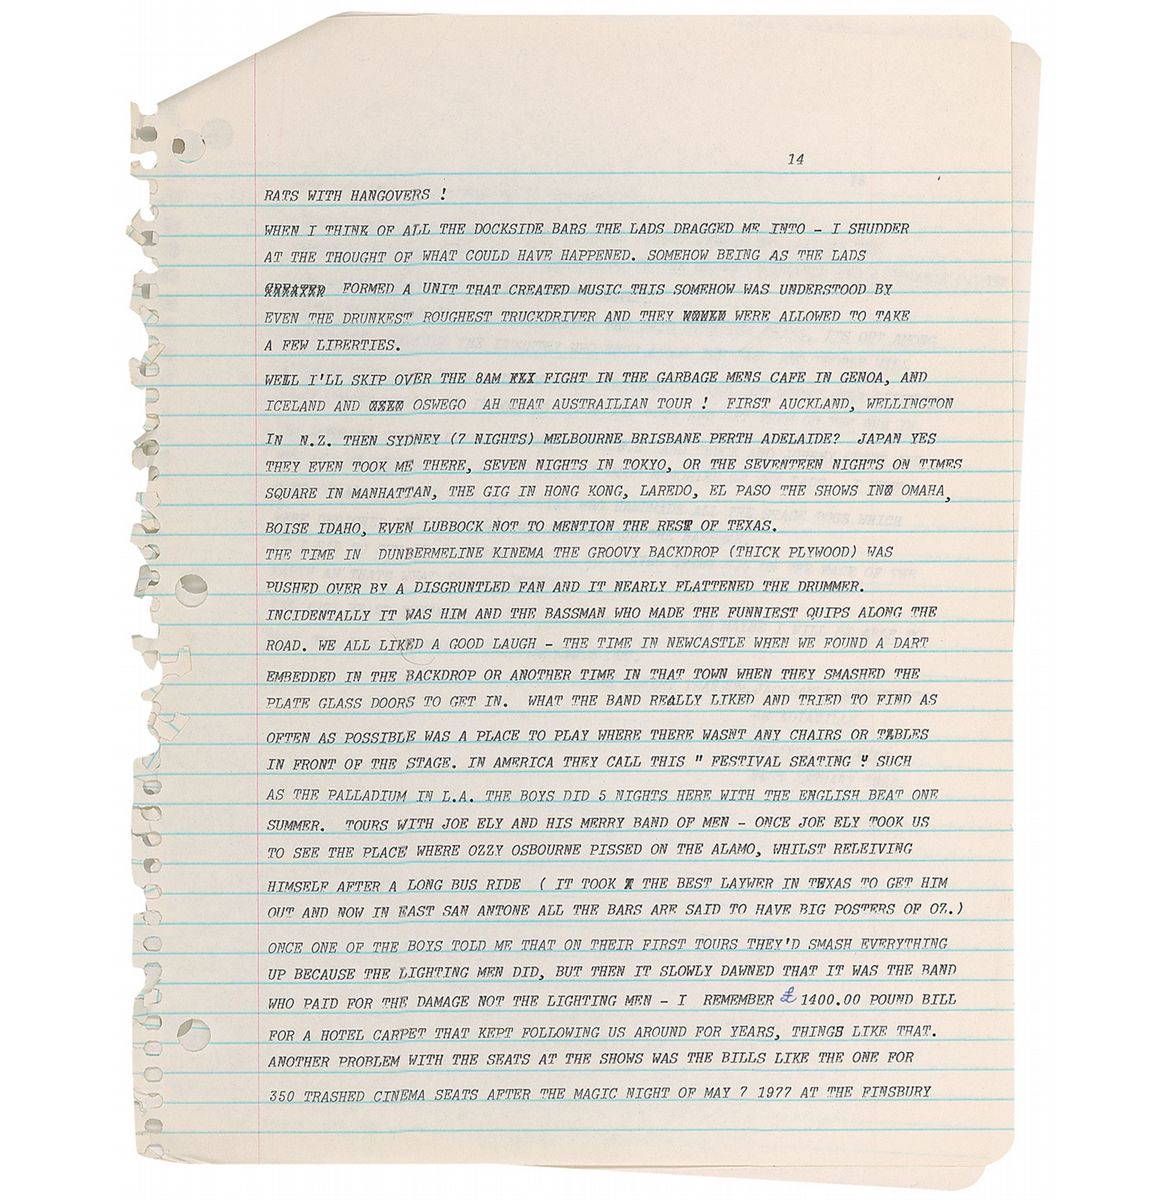 14
RATS WITH HANGOVERS !
WHEN I THINK OF ALL THE DOCKSIDE BARS THE LADS DRAGGED ME INTO - I SHUDDER
AT THE THOUGHT OF WHAT COULD HAVE HAPPENED. SOMEHOW BEING AS THE LADS
FORMED A UNIT THAT CREATED MUSIC THIS SOMEHOW WAS UNDERSTOOD BY
EVEN THE DRUNKEST ROUGHEST TRUCKDRIVER AND THEY WERE ALLOWED TO TAKE
A FEW LIBERTIES.
WELL I'LL SKIP OVER THE 8AM FIGHT IN THE GARBAGE MENS CAFE IN GENOA, AND
ICELAND AND OSWEGO AH THAT AUSTRAILIAN TOUR ! FIRST AUCKLAND, WELLINGTON
IN N.Z. THEN SYDNEY (7 NIGHTS) MELBOURNE BRISBANE PERTH ADELAIDE? JAPAN YES
THEY EVEN TOOK ME THERE, SEVEN NIGHTS IN TOKYO, OR THE SEVENTEEN NIGHTS ON TIMES
SQUARE IN MANHATTAN, THE GIG IN HONG KONG, LAREDO, EL PASO THE SHOWS IN OMAHA,
BOISE IDAHO, EVEN LUBBOCK NOT TO MENTION THE REST OF TEXAS.
THE TIME IN DUNBERMELINE KINEMA THE GROOVY BACKDROP (THICK PLYWOOD) WAS
PUSHED OVER BY A DISGRUNTLED FAN AND IT NEARLY FLATTENED THE DRUMMER.
INCIDENTALLY IT WAS HIM AND THE BASSMAN WHO MADE THE FUNNIEST QUIPS ALONG THE
ROAD. WE ALL LIKED A GOOD LAUGH - THE TIME IN NEWCASTLE WHEN WE FOUND A DART
EMBEDDED IN THE BACKDROP OR ANOTHER TIME IN THAT TOWN WHEN THEY SMASHED THE
PLATE GLASS DOORS TO GET IN. WHAT THE BAND REALLY LIKED AND TRIED TO FIND AS
OFTEN AS POSSIBLE WAS A PLACE TO PLAY WHERE THERE WASNT ANY CHAIRS OR TABLES
IN FRONT OF THE STAGE. IN AMERICA THEY CALL THIS " FESTIVAL SEATING " SUCH
AS THE PALLADIUM IN L.A. THE BOYS DID 5 NIGHTS HERE WITH THE ENGLISH BEAT ONE
SUMMER. TOURS WITH JOE ELY AND HIS MERRY BAND OF MEN - ONCE JOE ELY TOOK US
TO SEE THE PLACE WHERE OZZY OSBOURNE PISSED ON THE ALAMO, WHILST RELEIVING
HIMSELF AFTER A LONG BUS RIDE ( IT TOOK THE BEST LAYWER IN TEXAS TO GET HIM
OUT AND NOW IN EAST SAN ANTONE ALL THE BARS ARE SAID TO HAVE BIG POSTERS OF OZ.)
ONCE ONE OF THE BOYS TOLD ME THAT ON THEIR FIRST TOURS THEY'D SMASH EVERYTHING
UP BECAUSE THE LIGHTING MEN DID, BUT THEN IT SLOWLY DAWNED THAT IT WAS THE BAND
WHO PAID FOR THE DAMAGE NOT THE LIGHTING MEN - I REMEMBER £ 1400.00 POUND BILL
FOR A HOTEL CARPET THAT KEPT FOLLOWING US AROUND FOR YEARS, THINGS LIKE THAT.
ANOTHER PROBLEM WITH THE SEATS AT THE SHOWS WAS THE BILLS LIKE THE ONE FOR
350 TRASHED CINEMA SEATS AFTER THE MAGIC NIGHT OF MAY 7 1977 AT THE FINSBURY